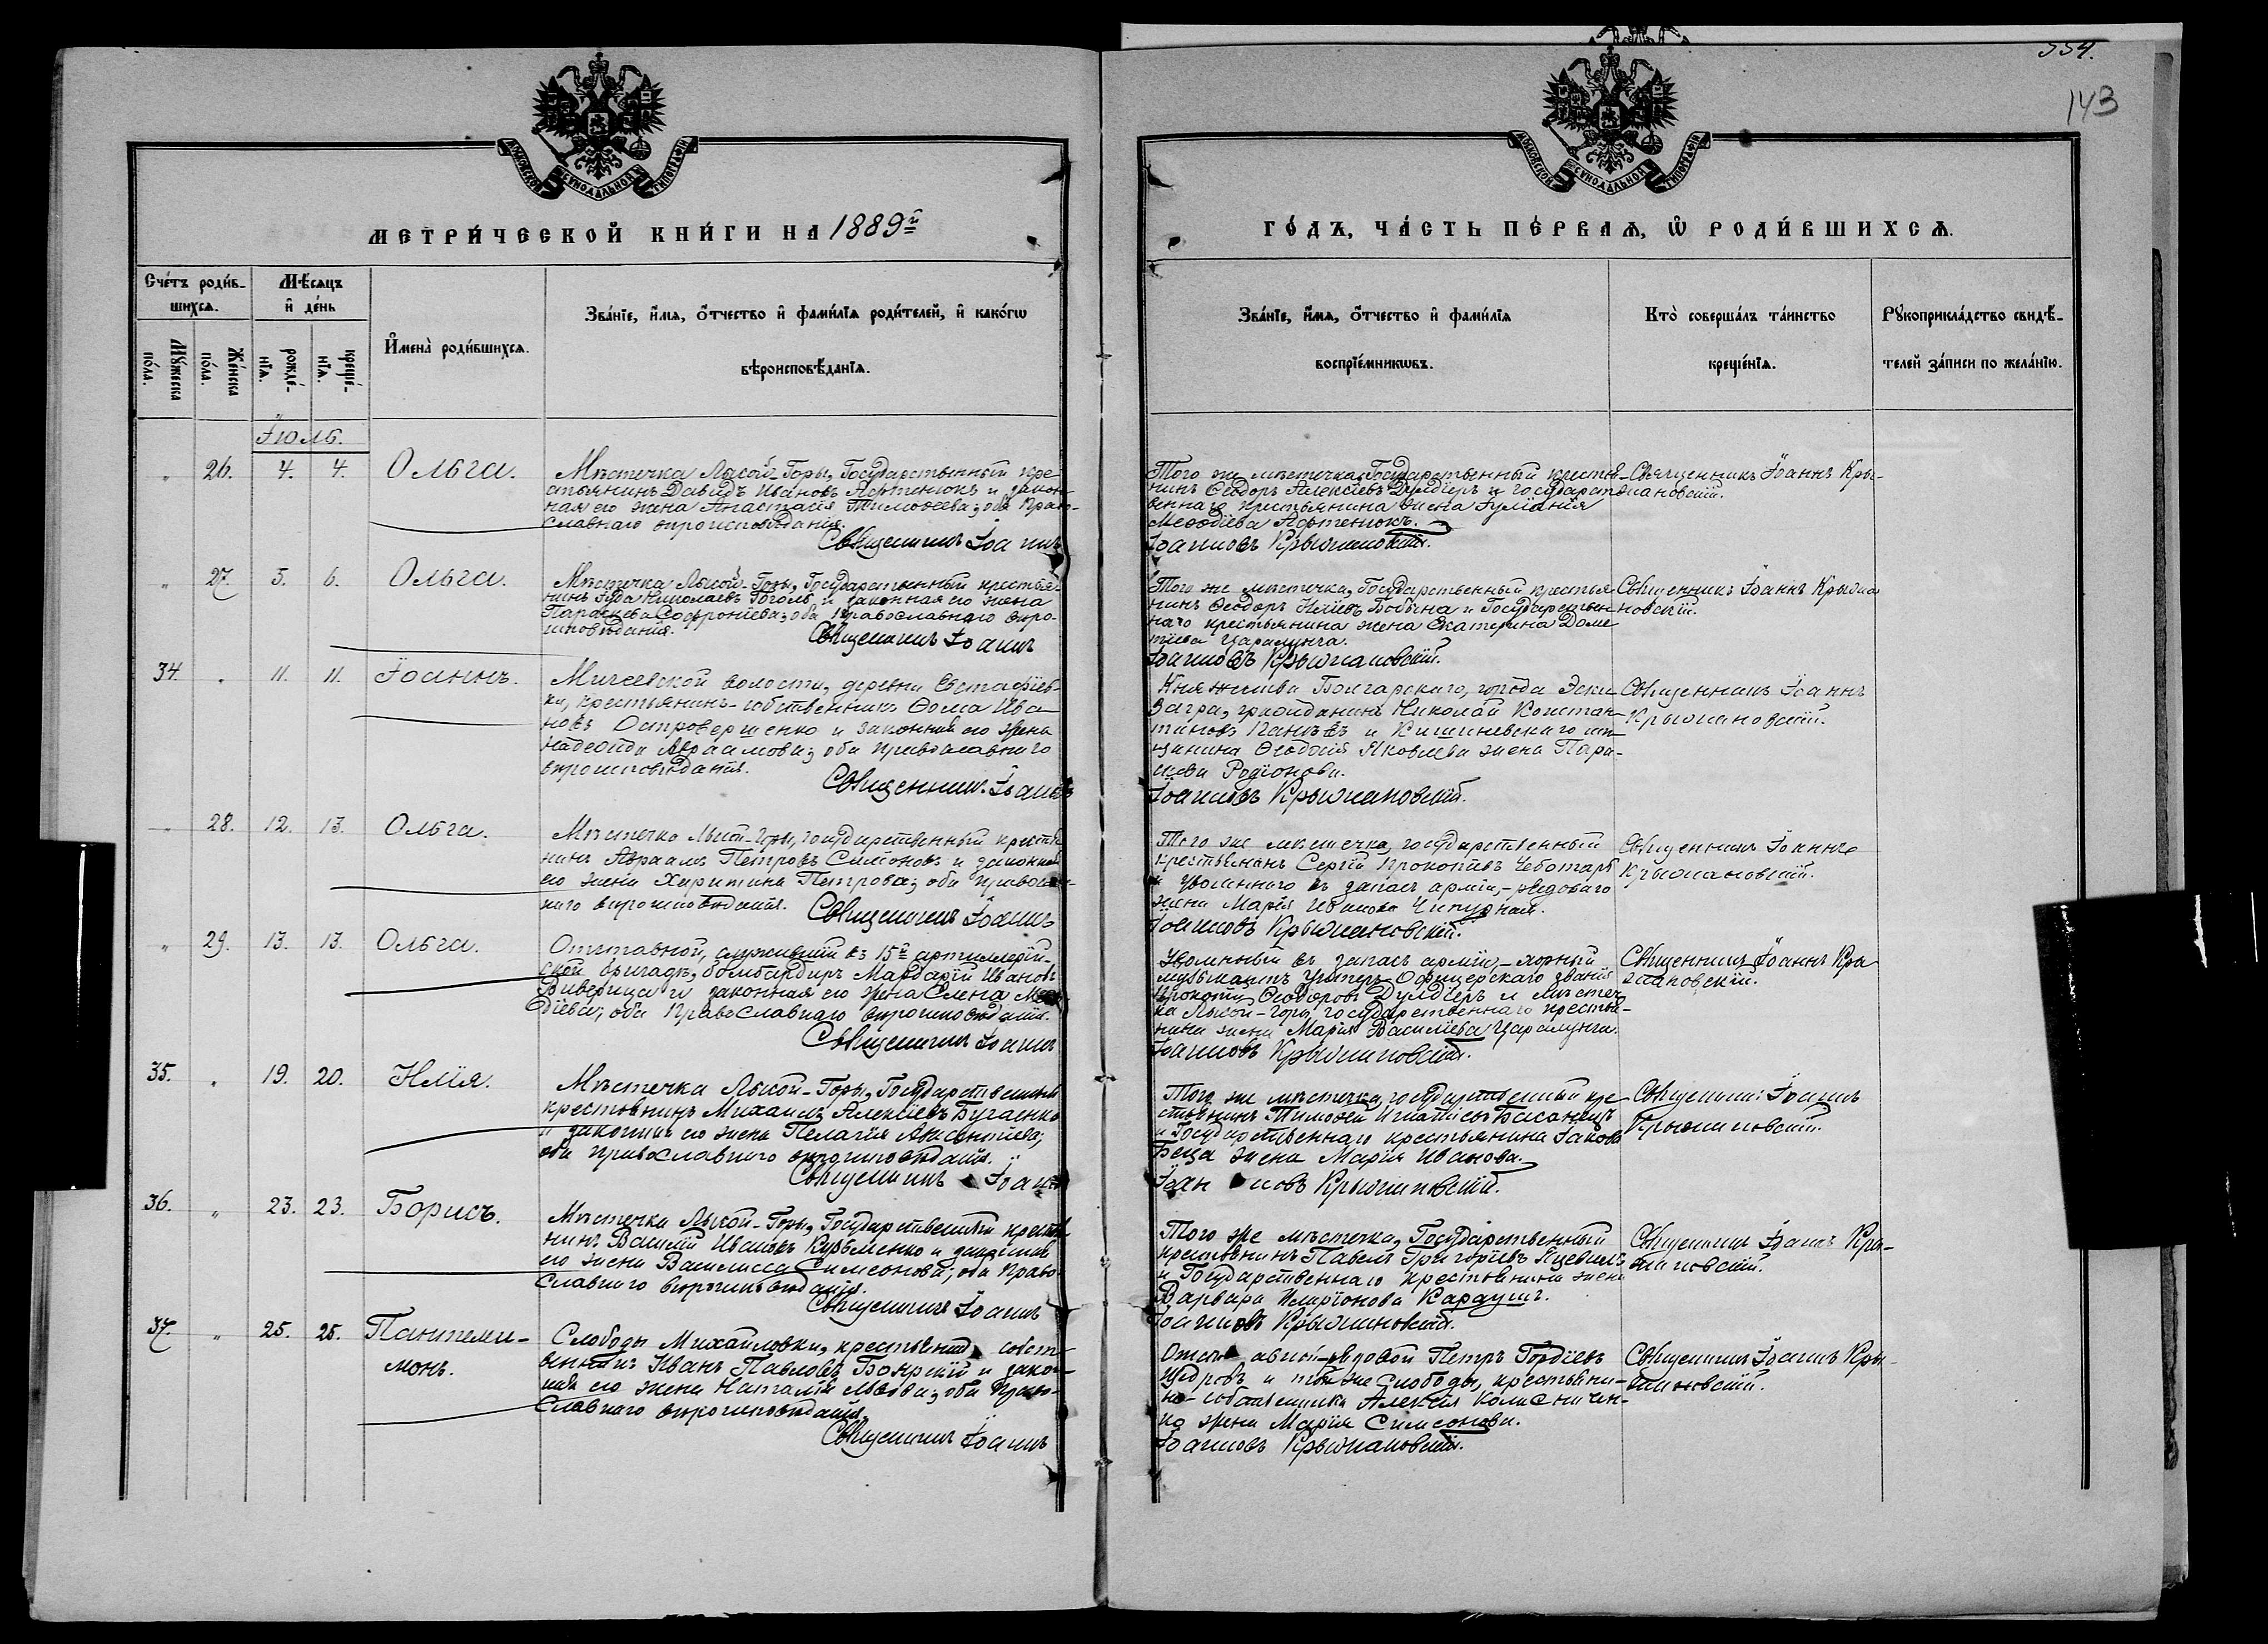 554.
143
МОСКОВСКОЙ СѴНОДАЛЬНОЙ ТИПОГРАФІИ
МОСКОВСКОЙ СѴНОДАЛЬНОЙ ТИПОГРАФІИ
МЕТРИ́ЧЕСКОЙ КНИ́ГИ НА 1889й
ГО́ДЪ, ЧА́СТЬ ПЕ́РВАѦ, Ѿ РОДИ́ВШИХСѦ.
Сче́тъ роди́в-
шихсѧ.
Мꙋ́жеска по́ла.
Же́нска по́ла.
Мѣ́сѧцъ
и҆ де́нь
рожде́-
нїѧ.
креще́-
нїѧ.
И҆мена̀ роди́вшихсѧ.
Зва́нїе, и҆́мѧ, ѻ҆́тчество и҆ фами́лїѧ роди́телей, и҆ како́гѡ
вѣроисповѣ́данїѧ.
Зва́нїе, и҆́мѧ, ѻ҆́тчество и҆ фами́лїѧ
воспрїе́мникѡвъ.
Кто̀ соверша́лъ та́инство
креще́нїѧ.
Рꙋкоприкла́дство свидѣ́-
телей за́писи по жела́нїю.
Іюль.
" 26. 4. 4. Ольга.
Мѣстечка Лысой-Горы, Государственный кре-
стьянинъ Давидъ Ивановъ Афтенюкъ и закон-
ная его жена Анастасія Тимоѳеева; оба Право-
славнаго вѣроисповѣданія.
Священникъ Іоаннъ
Того же мѣстечка Государственный крестья-
нинъ Ѳеодоръ Алексіевъ Дулдіеръ и государст-
веннаго крестьянина жена Іуліанія
Меѳодіева Афтенюкъ.
Іоанновъ Крыжановскій.
Священникъ Іоаннъ Кры-
жановскій.
" 27. 5. 6. Ольга.
Мѣстечка Лысой-Горы, Государственный крестья-
нинъ Іуда Николаевъ Гоголь и законная его жена
Параскева Софроніева; оба Православнаго вѣро-
исповѣданія.
Священникъ Іоаннъ
Того же мѣстечка, Государственный крестья-
нинъ Ѳеодоръ Иліевъ Бобына и Государствен-
наго крестьянина жена Екатерина Доме
тіева Царалунга.
Іоанновъ Крыжановскій.
Священникъ Іоаннъ Крыжа
новскій.
34. " 11. 11. Іоаннъ.
Мигеевской волости, деревни Евстафіев-
ки, крестьянинъ-собственникъ Ѳома Ива-
новъ Островершенко и законная его жена
Надежда Авраамова; оба православнаго
вѣроисповѣданія.
Священник. Іоаннъ
Княжества Болгарскаго, города Эски-
Загра, гражданинъ Николай Констан-
тиновъ и Кишиневскаго мѣ-
щанина Ѳеодосія Яковлева жена Пара-
скева Родіонова.
Іоанновъ Крыжановскій.
Священникъ Іоаннъ
Крыжановскій.
" 28. 12. 13. Ольга.
Мѣстечка Лысой-Горы, государственный крестья
нинъ Авраамъ Петровъ Симоновъ и законная
его жена Харитина Петрова; оба православ-
наго вѣроисповѣданія. Священникъ Іоаннъ
Того же мѣстечка, государственный
крестьянинъ Сергій Прокопіевъ Чеботарь
и уволеннаго въ запасъ арміи,-рядоваго
жена Марія Иванова Чипурная.
Іоанновъ Крыжановскій.
Священникъ Іоаннъ
Крыжановскій.
" 29. 13. 13. Ольга.
Отставной, служившій въ 15й артиллерій-
ской бригадѣ, бомбардиръ Мардарій Ивановъ
Виверица и законная его жена Елена Меѳо-
діева; оба Православнаго вѣроисповѣданія.
Священникъ Іоаннъ
Уволенный въ запасъ арміи,
музыкантъ Унтеръ-Офицерскаго званія
Прокопій Ѳеодоровъ Дулдіеръ и мѣстеч-
ка Лысой-Горы, государственнаго крестья-
нина жена Марія Василіева Царалунга.
Іоанновъ Крыжановскій.
Священникъ Іоаннъ Кры
жановскій.
35. " 19. 20. Илія.
Мѣстечка Лысой-Горы, Государственный
крестьянинъ Михаилъ Алексіевъ Бугаенко
и законная его жена Пелагія Авксентіева;
оба православнаго вѣроисповѣданія.
Священникъ Іоаннъ
Того же мѣстечка, государственный кре-
стьянинъ Тимоѳей Игнатіевъ
и Государственнаго крестьянина Іакова
Беца жена Марія Иванова.
Іоанновъ Крыжановскій.
Священникъ Іоаннъ
Крыжановскій.
36. " 23. 23. Борисъ.
Мѣстечка Лысой-Горы, Государственный крестья
нинъ Василій Ивановъ Кузьменко и законная
его жена Василисса Симеонова; оба Право-
славнаго вѣроисповѣданія.
Священникъ Іоаннъ
Того же мѣстечка, Государственный
крестьянинъ Павелъ Григоріевъ
и Государственнаго крестьянина жена
Варвара Иларіонова Карауш.
Іоанновъ Крыжановскій.
Священникъ Іоаннъ Кры-
жановскій.
37. " 25. 25. Пантелеи-
монъ.
Слободы Михайловки, крестьянинъ собст-
венникъ Иванъ Павловъ Боярскій и закон-
ная его жена Наталія Львова; оба Право-
славнаго вѣроисповѣданія.
Священникъ Іоаннъ
Отставной рядовой Петръ Гордіевъ
и той же Слободы, крестьяни-
на-собственника Алексія Колисничен-
ко жена Марія Симеонова.
Іоанновъ Крыжановскій.
Священникъ Іоаннъ Кры-
жановскій.